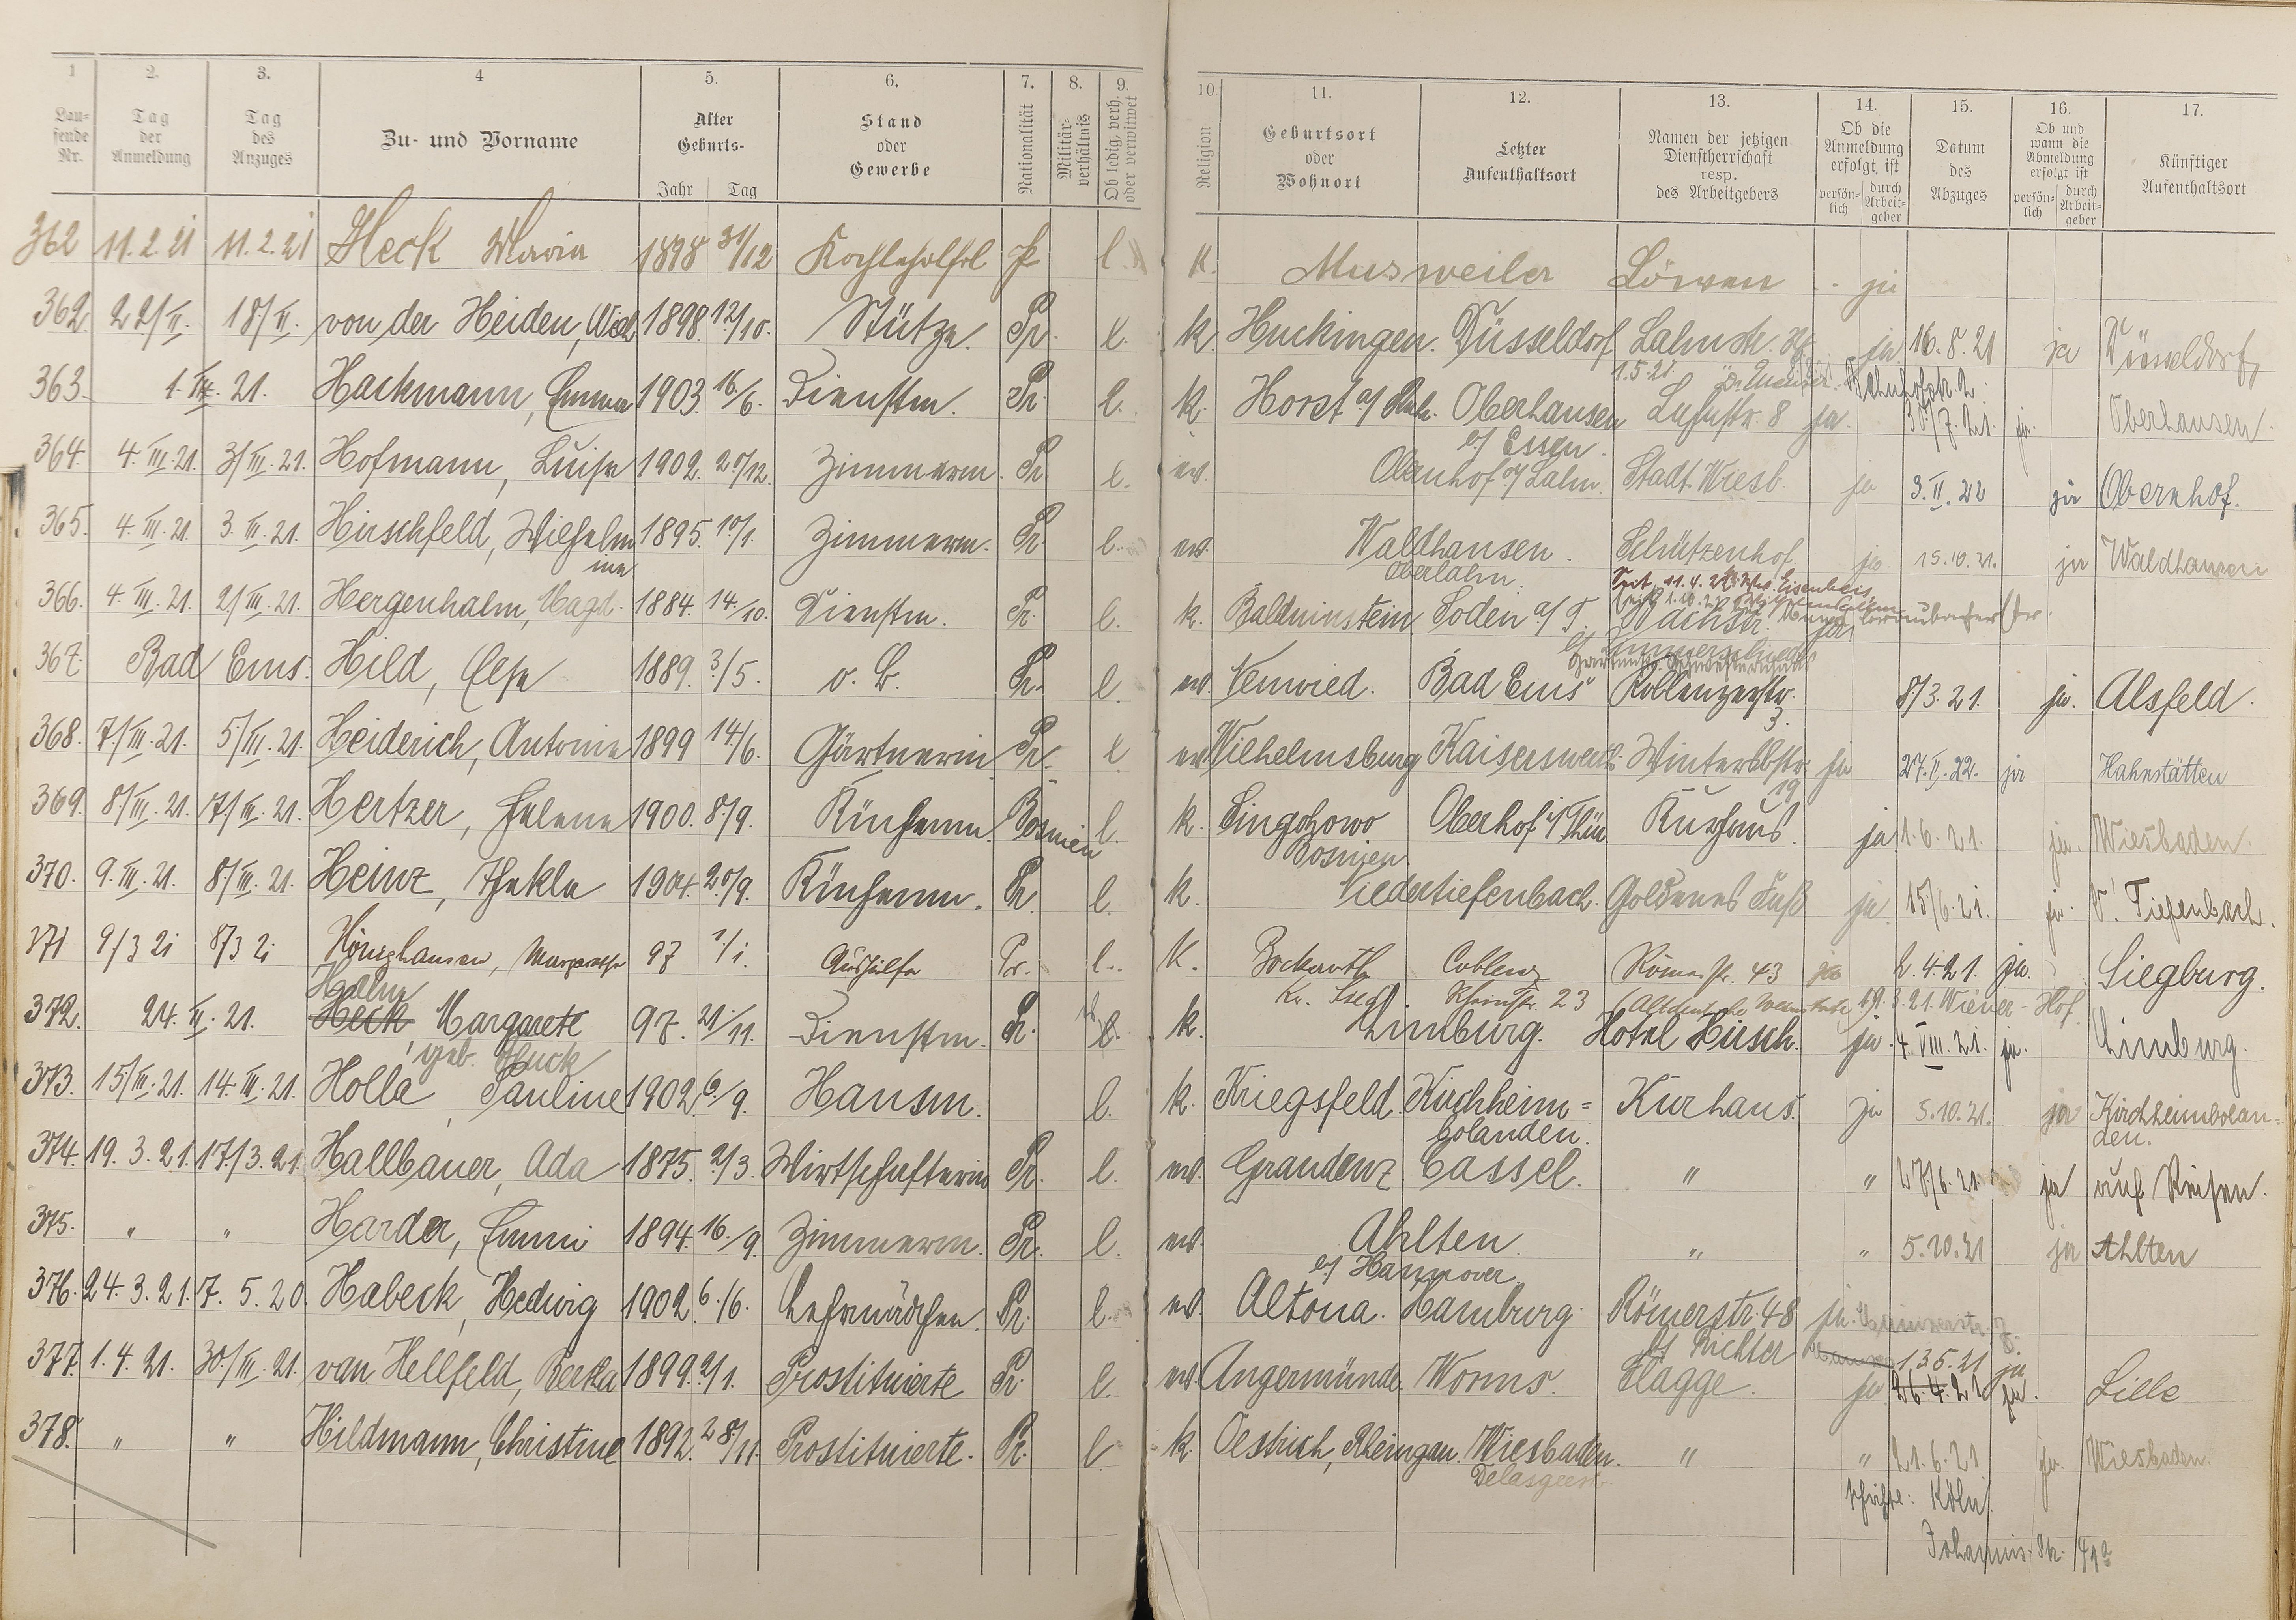 1
2.
3.
4
5.
6.
7.
8.
9.
10.
11.
12.
13.
14.
15.
16.
17.
Laufende Nr.
Tag der Anmeldung
Tag des Anzuges
Zu- und Vorname
Alter Geburts- Jahr Tag
Stand oder Gewerbe
Nationalität
Militärverhältnis
Ob ledig, verh. oder verwitwet
Religion
Geburtsort oder Wohnort
Letzter Aufenthaltsort
Namen der jetzigen Dienstherrschaft resp. des Arbeitgebers
Ob die Anmeldung erfolgt ist persönlich durch Arbeitgeber
Datum des Abzuges
Ob und wann die Abmeldung erfolgt ist persönlich durch Arbeitgeber
Künftiger Aufenthaltsort
362 11.2.21 11.2.21 Heck Maria 1898 31/12 l. K. Musweiler Löwen ja
362. 22/II. 18/II. von der Heiden, 1898. 12/10. Stütze. Pr. l. k. Huckingen. Düsseldorf ja 16.8.21 ja Düsseldorf
1.5.21 Bahnhofstr. 2.
363. 1.III.21. Hackmann, Emma 1903. 16/6. Dienstm. Pr. l. k. Horst a/ Ruhr. Oberhausen 8 ja. 30/7.21. ja. Oberhausen.
b/ Essen.
364. 4.III.21. 3/III.21. Hofmann, Luise 1902. 20/12. Zimmerm. Pr. l. ev. Obernhof a/ Lahn. Stadt Wiesb. ja 3.II.22 ja Obernhof.
365. 4.III.21. 3.III.21. Hirschfeld, Wilhelmine 1895. 10/1. Zimmerm. Pr. l. ev. Waldhausen. Schützenhof ja. 15.10.21. ja Waldhausen
Oberlahn.
366. 4.III.21. 2/III.21. Hergenhalm, Magd. 1884. 14./10. Dienstm. Pr. l. k. Balduinstein Soden a/T. ja
367. Bad Ems. Hild, Else 1889. 3/5. o. B. Pr. l. ev. Neuwied. Bad Ems Koblenzerstr. 3. 8/3.21. ja. Alsfeld.
368. 7/III.21. 5/III.21. Heiderich, Antonie 1899 14./6. Gärtnerin Pr. l. ev. Wilhelmsburg Kaiserswerth. 19 ja 27.II.22. ja Hahnstätten
369. 8/III.21. 7/III.21. Hertzer, Helene 1900. 8./9. Küchenm. Bosnien l. k. Oberhof i/Thür. Kurhaus. ja 1.6.21. ja. Wiesbaden.
Bosnien.
370. 9.III.21. 8/III.21. Heinz, Thekla 1904. 20/9. Küchenm. Pr. l. k. Niedertiefenbach. Goldenes Faß ja 15/6.21. ja. N. Tiefenbach.
371 9/3 21 8/3 21 Höninghausen, Margarethe 97 1/1. Aushilfe Pr. l. K. Bockeroth Coblenz Römerstr. 43 ja 2.4.21. ja. Siegburg.
Kr. Siegb. 23 19.3.21. Wiener-Hof.
372. 24.II.21. Heck Margarete 97. 21./11. Dienstm. Pr. l. k. Limburg. Hotel Hirsch. ja. 4.VIII.21. ja. Limburg.
geb.
373. 15/III.21. 14.III.21. Holla, Pauline 1902 6/9. Hausm. l. k. Kriegsfeld. Kirchheimbolanden. Kurhaus. ja 5.10.21. ja Kirchheimbolanden.
374. 19.3.21. 17/3.21. Hallbauer, Ada 1875. 2/3. Wirtschafterin Pr. l. ev. Graudenz Cassel. " " 27/6.21. ja auf Reisen.
375. " " Harder, Emmi 1894. 16./9. Zimmerm. Pr. l. ev. Ahlten. " " 5.10.21 ja Ahlten
b/ Hannover.
376. 24.3.21. 7.5.20. Habeck, Hedwig 1902. 6./6. Lehrmädchen. Pr. l. ev. Altona. Hamburg. Römerstr. 48 ja.
b/ Richter
377. 1.4.21. 30./III.21. van Hellfeld, Berka 1899. 2/1. Prostituierte Pr. l. ev. Angermünde. Worms. Flagge. ja 13.5.21 ja 26.4.21 ja. Lille
378. " " Hildmann, Christine 1892. 28/11. Prostituierte. Pr. l. k. Oestrich, Rheingau. Wiesbaden. " " 21.6.21 ja. Wiesbaden.
Köln.
Johannis-Str. 41a